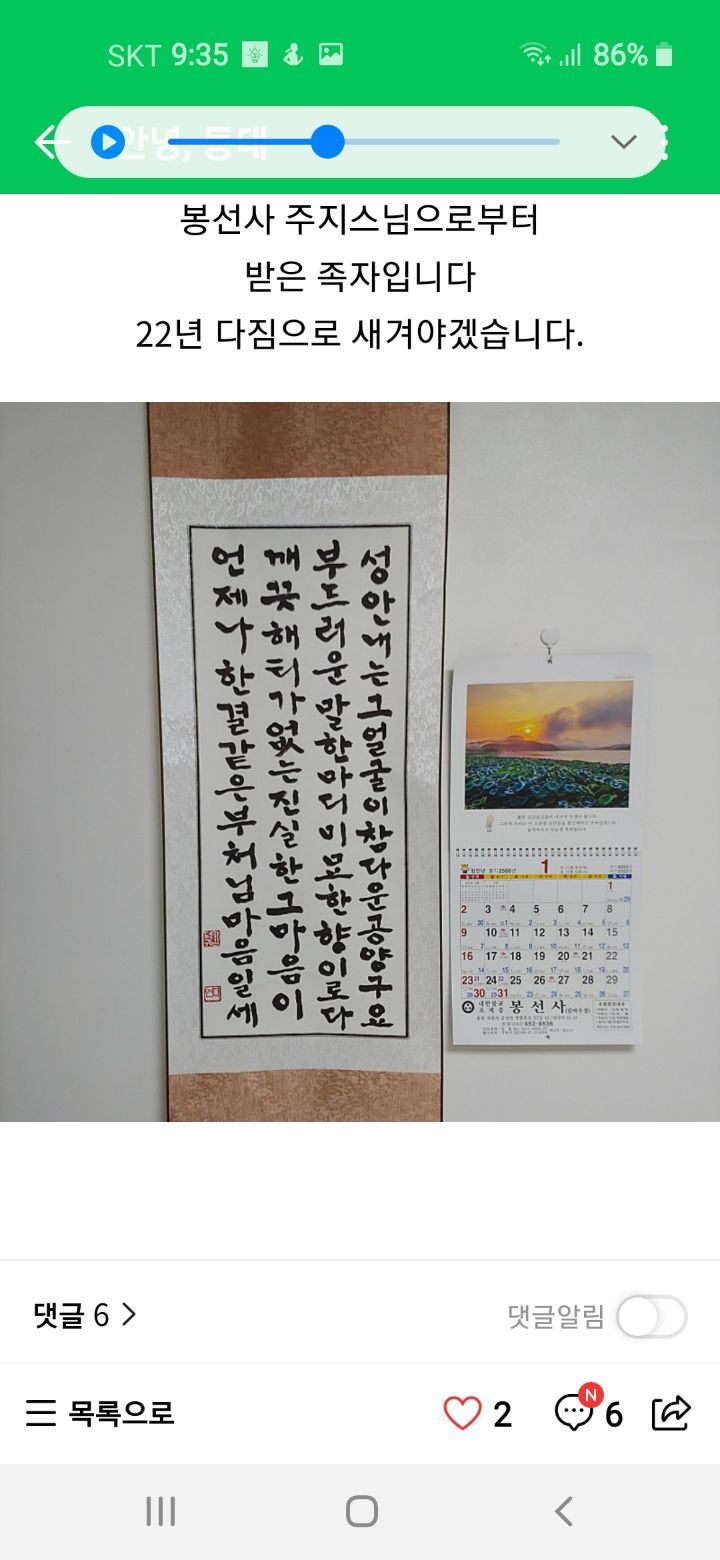 SKT 9:35
86%
안녕, 등대
봉선사 주지스님으로부터
받은 족자입니다
22년 다짐으로 새겨야겠습니다.
성안내는그얼굴이참다운공양구요
부드러운말한마디미묘한향이로다
깨끗해티가없는진실한그마음이
언제나한결같은부처님마음일세
임인년 불기2566년 1
1
2 3 4 5 6 7 8
9 10 11 12 13 14 15
16 17 18 19 20 21 22
23 24 25 26 27 28 29
30 31
대한불교
조계종 봉선사
652-9536
댓글 6
댓글알림
목록으로
2
N
6